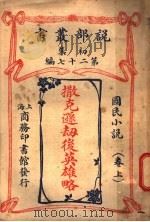 說部叢書
初集
第二十七編
國民小說
(卷上)
撒克遜劫後英雄略
上海商務印書館發行